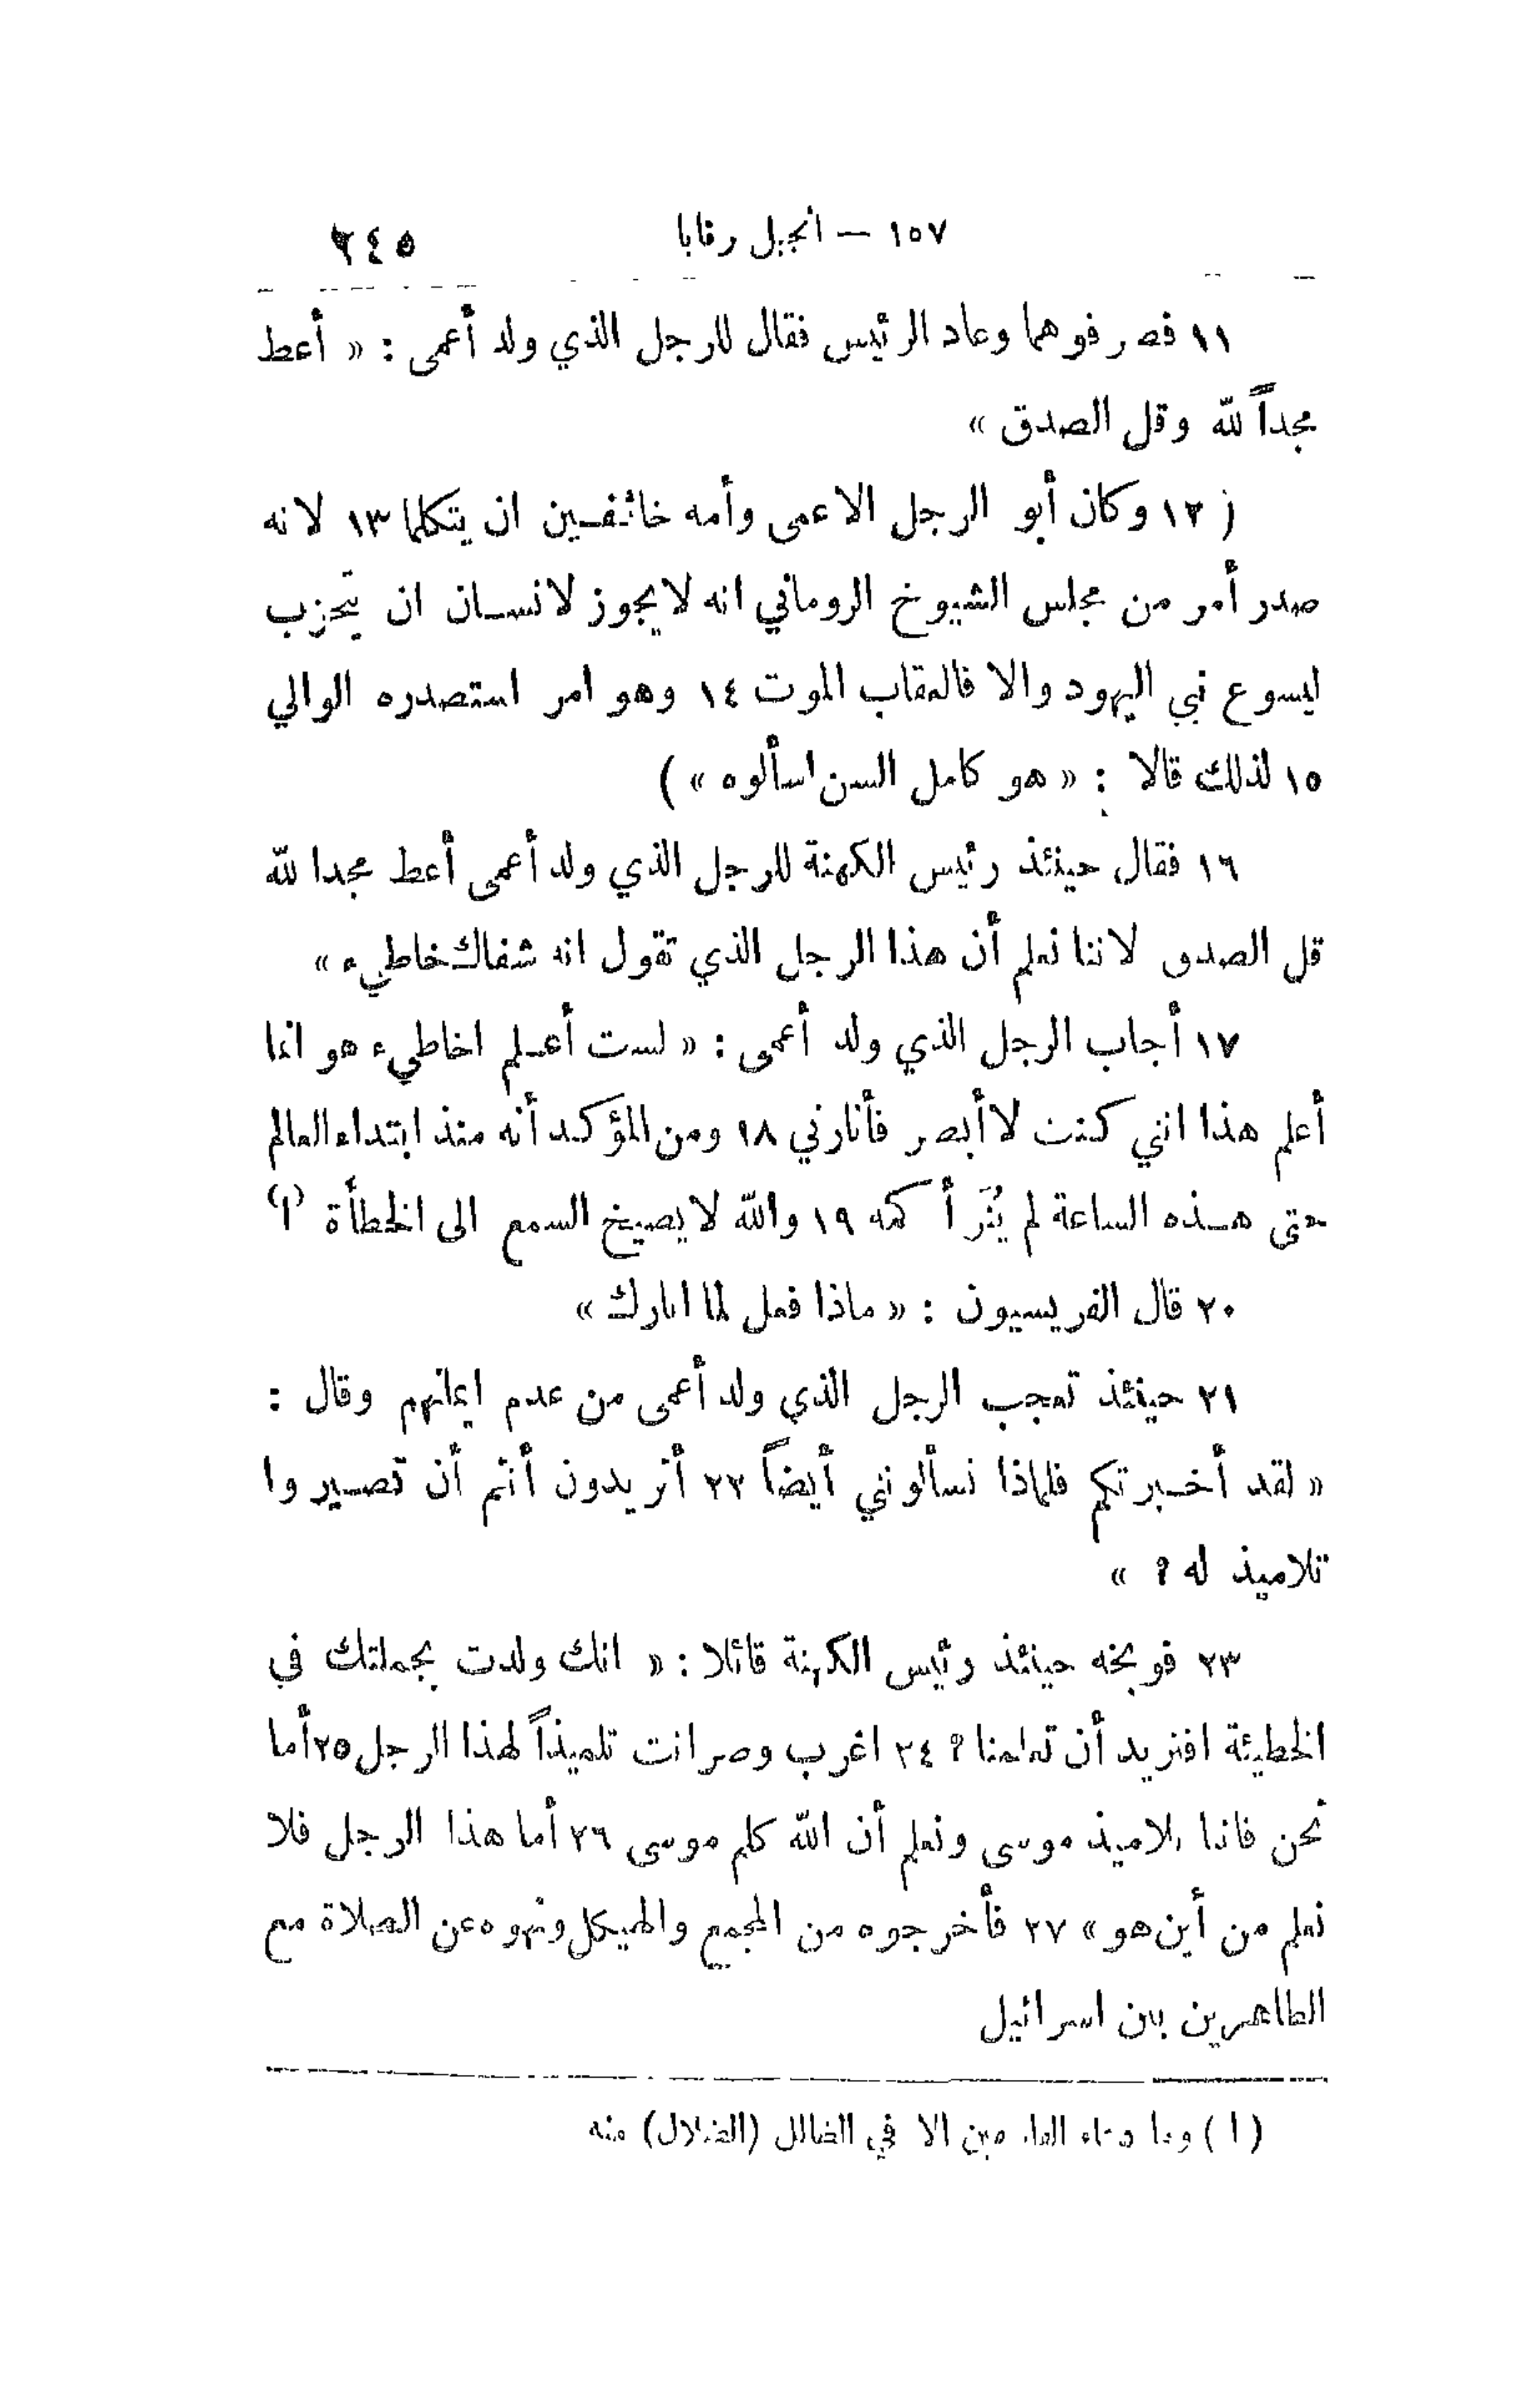 ١٥٧ — انجيل رنابا ٢٤٥
١١ فصرفوهما وعاد الرئيس فقال للرجل الذي ولد أعمى : « أعط
مجداً لله وقل الصدق »
( ١٢ وكان أبو الرجل الاعمى وأمه خائفين ان يتكلما ١٣ لانه
صدر أمر من مجلس الشيوخ الروماني انه لا يجوز لانسان ان يتحزب
ليسوع نبي اليهود والا فالعقاب الموت ١٤ وهو امر استصدره الوالي
١٥ لذلك قالا : « هو كامل السن اسألوه » )
١٦ فقال حينئذ رئيس الكهنة للرجل الذي ولد أعمى أعط مجدا لله
قل الصدق لاننا نعلم أن هذا الرجل الذي تقول انه شفاك خاطيء »
١٧ أجاب الرجل الذي ولد أعمى : « لست أعلم اخاطيء هو انما
أعلم هذا انني كنت لا أبصر فأنارني ١٨ ومن المؤكد أنه منذ ابتداء العالم
حتى هذه الساعة لم يُنَر أكمه ١٩ والله لا يصيخ السمع الى الخطأة (ا)
٢٠ قال الفريسيون : « ماذا فعل لما انارك »
٢١ حينئذ تعجب الرجل الذي ولد أعمى من عدم ايمانهم وقال :
« لقد أخبرتكم فلماذا تسألونني أيضاً ٢٢ أتريدون أنتم أن تصيروا
تلاميذ له ؟ »
٢٣ فوبخه حينئذ رئيس الكهنة قائلا : « انك ولدت بجملتك في
الخطيئة افتريد أن تعلمنا ؟ ٢٤ اغرب وصر انت تلميذاً لهذا الرجل ٢٥ أما
نحن فاننا تلاميذ موسى ونعلم أن الله كلم موسى ٢٦ أما هذا الرجل فلا
نعلم من أين هو » ٢٧ فأخرجوه من المجمع والهيكل ونهوه عن الصلاة مع
الطاهرين بين اسرائيل
( ا ) وما دعاء الا في الضالل (الضلال) منه